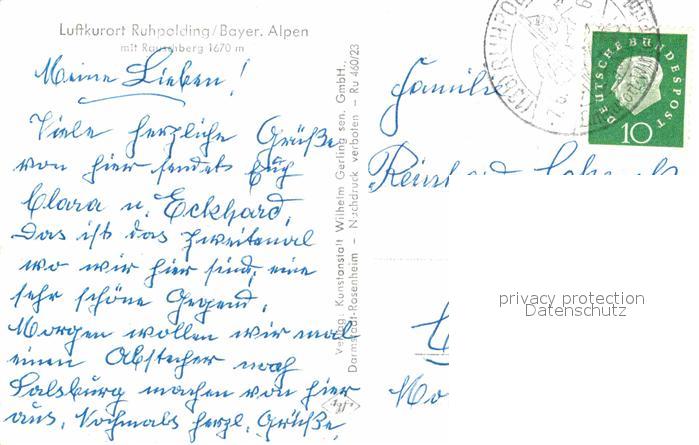 Luftkurort Ruhpolding/Bayer. Alpen
mit Rauschberg 1670 m
Meine Lieben!
Viele herzliche Grüße
von hier sendet Euch
Clara u. Eckhard.
Das ist das zweitemal
wo wir hier sind, eine
sehr schöne Gegend.
Morgen wollen wir mal
einen Abstecher nach
Salzburg machen von hier
aus. Nochmals herzl. Grüße
Verlag: Kunstanstalt Wilhelm Gerling sen. GmbH.,
Darmstadt-Rosenheim – Nachdruck verboten – Ru 460/23
Agfa
Familie
(13b) RUHPOL
DEUTSCHE BUNDESPOST
10
privacy protection
Datenschutz
Mo